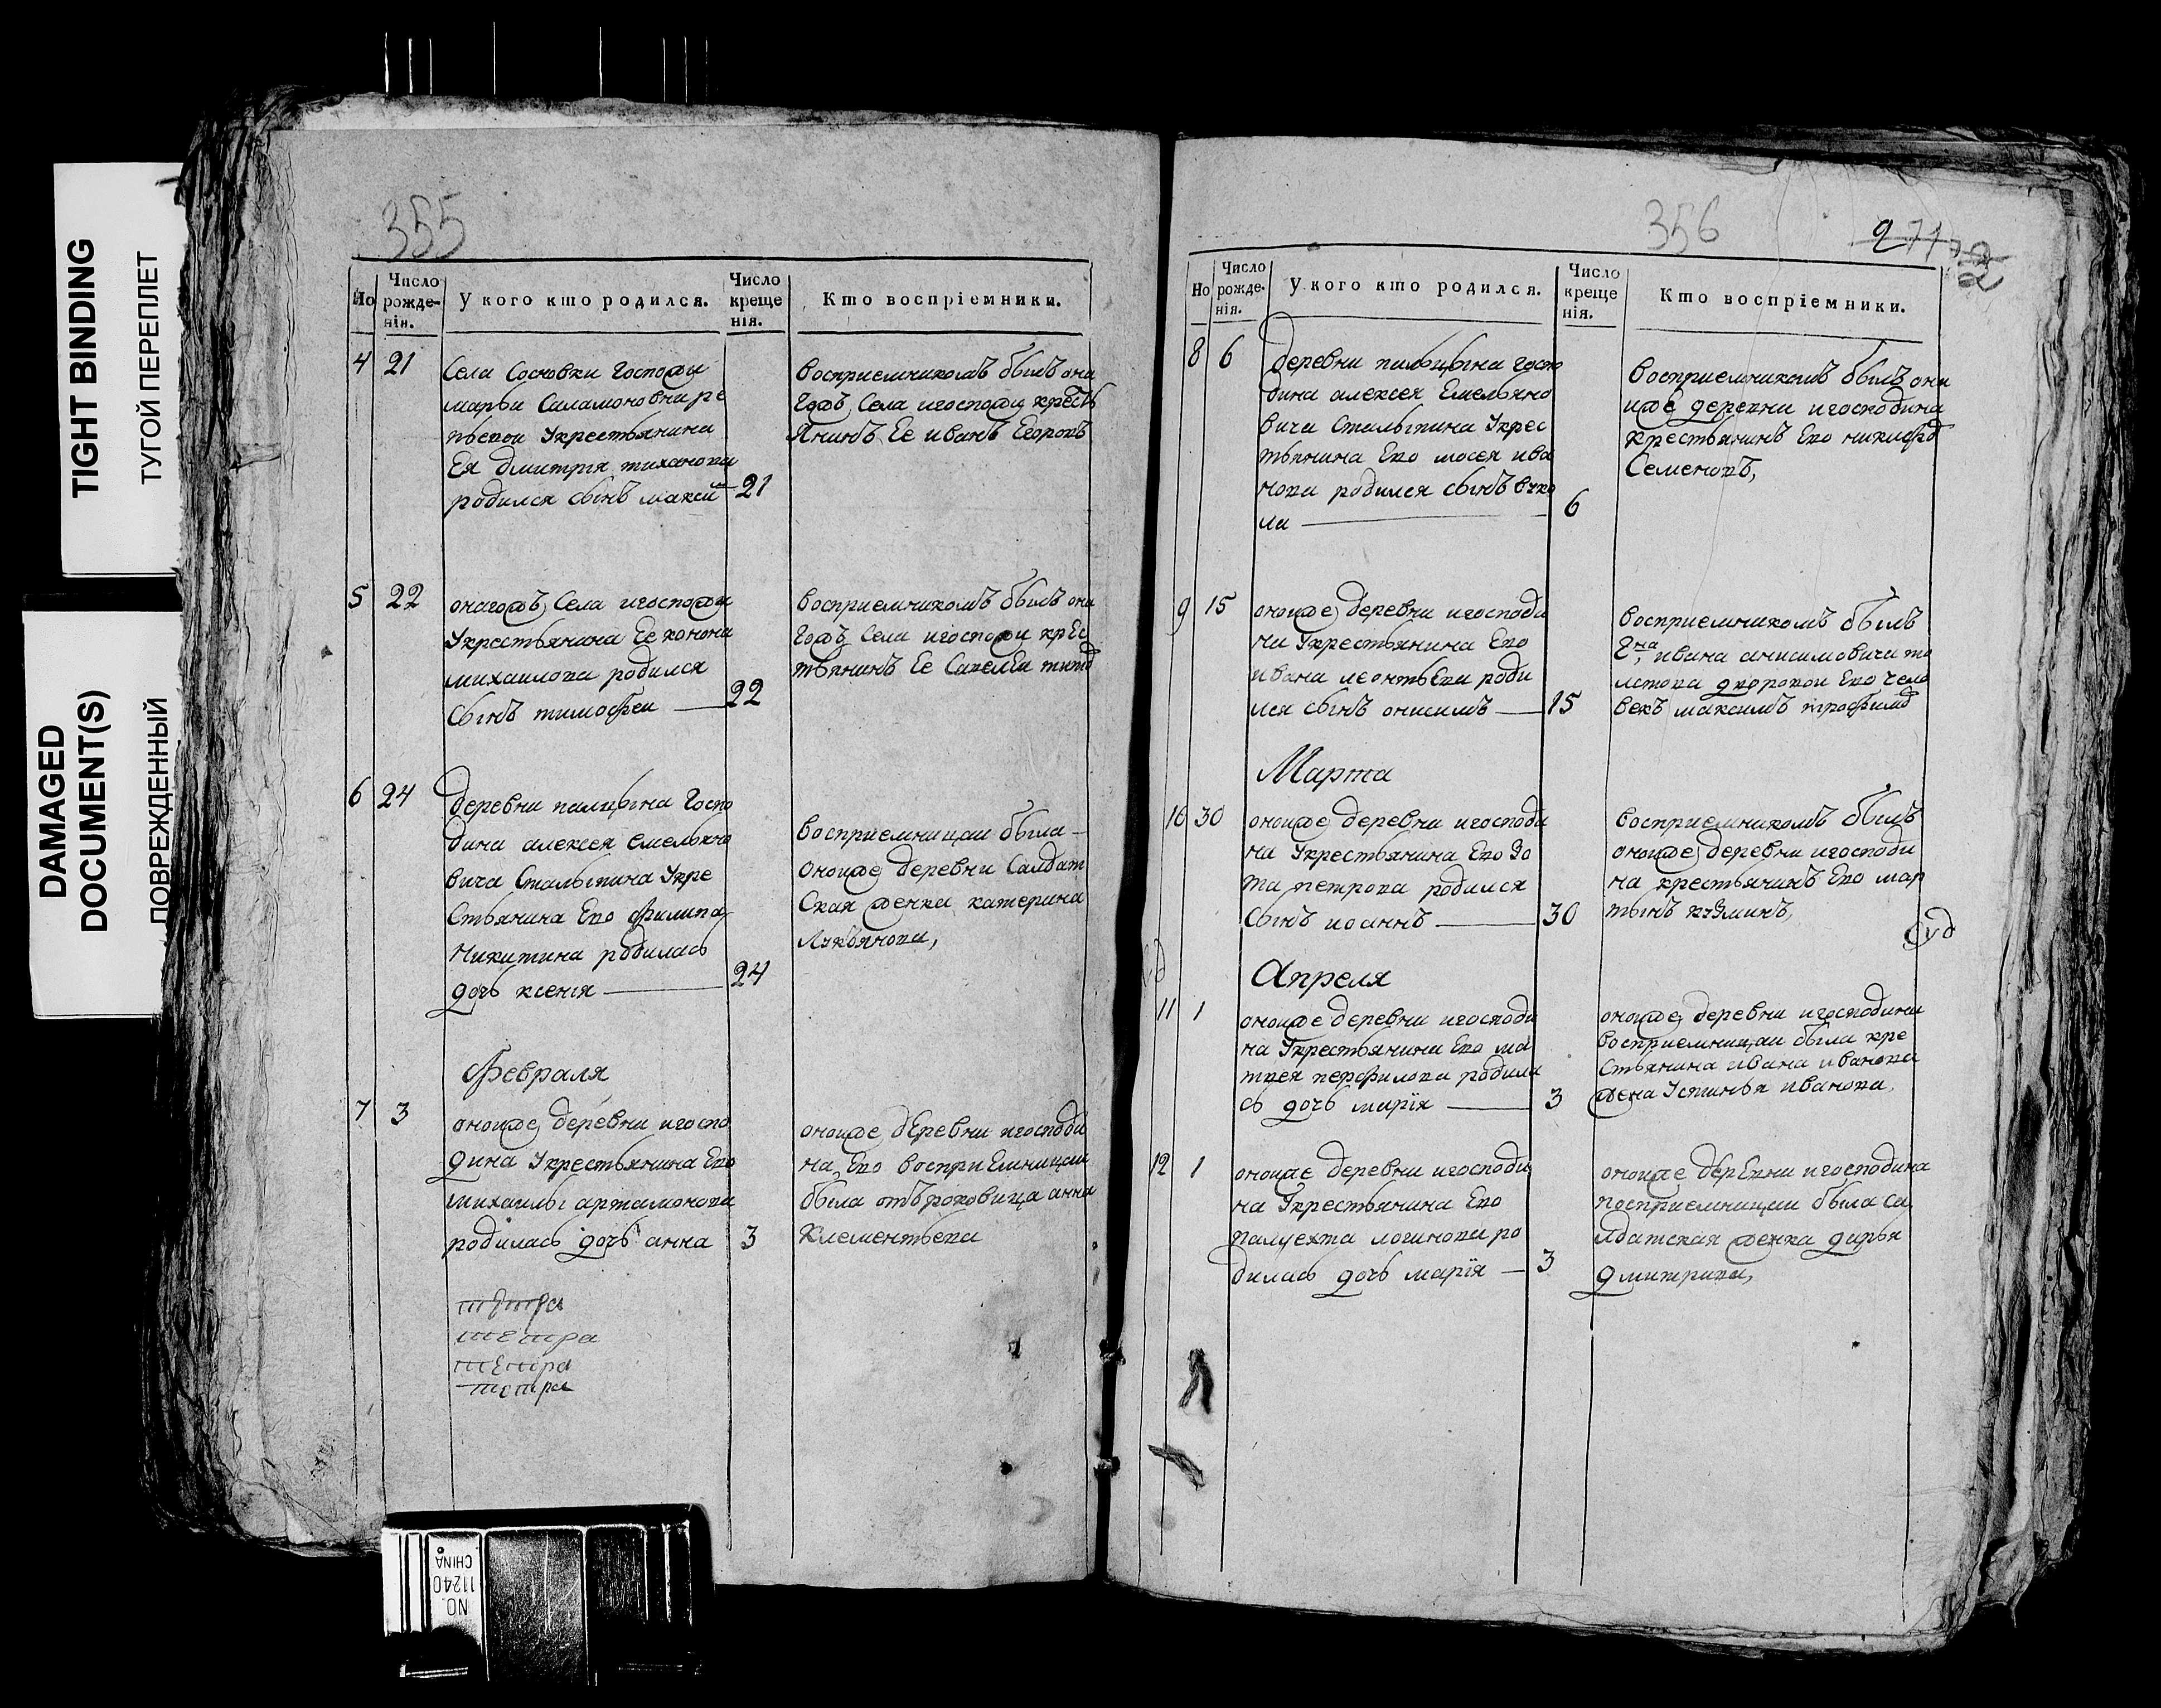 TIGHT BINDING
ТУГОЙ ПЕРЕПЛЕТ
DAMAGED
DOCUMENT(S)
ПОВРЕЖДЕННЫЙ
355
Но
Число рожде- нія.
У кого кто родился.
Число креще нія.
Кто воспріемники.
4 21
Села Сосновки Госпожи
марьи Саламоновны ре
пьевои Укрестьянина
Ея дмитрия тиханова
родился сынъ максим 21
восприемникомъ былъ она
гожъ Села игоспожи кресть
янинъ Ее иванъ Егоровъ
5 22
онагожъ Села игоспожи
Укрестьянина Ее конона
михаилова родился
сынъ тимофеи 22
восприемникомъ былъ она
гожъ Села игоспожи крес
тьянинъ Ее Савелеи титов
6 24
деревни палицына Госпо
дина алексея емельяно
вича Сталыпина Укре
стьянина Ево филипа
Никитина родилась
дочь ксения 24
восприемницаи была
оноиже деревни Салдат
ская женка катерина
Лукьянова,
Февраля
7 3
оноиже деревни игоспо
дина Укрестьянина Ево
михаилы артамонова
родилась дочь анна 3
оноиже деревни игосподи
на Ево восприемницаи
была отъроковица анна
Клементьева
NO. 11240 CHINA
356
271
Но
Число рожде- нія.
У кого кто родился.
Число креще нія.
Кто воспріемники.
8 6
деревни пальцына госпо
дина алексея Емельяно
вича Сталыпина Укрес
тьянина Ево мосея ива
нова родился сынъ вуко
ла 6
восприемникомъ былъ оно
иже деревни игосподина
крестьянинъ Ево никифор
Семеновъ,
9 15
оноиже деревни игосподи
на Укрестьянина Ево
ивана леонтьева роди
лся сынъ онисимъ 15
восприемникомъ былъ
Гна ивана анисимовича то
лстова дворовои Ево чело
векъ максимъ трофимов
Марта
10 30
оноиже деревни игосподи
на Укрестьянина Ево Зо
та петрова родился
сынъ иоаннъ 30
восприемникомъ былъ
оноиже деревни игосподи
на крестьянинъ Ево мар
тынъ кузминъ,
Апреля
11 1
оноиже деревни игосподи
на Укрестьянина Ево ма
твея перфилова родила
сь дочь марїя 3
оноиже деревни игосподина
восприемницаи была кре
стьянина ивана иванова
жена Устинья иванова
12 1
оноиже деревни игосподи
на Укрестьянина Ево
палуехта логинова ро
дилась дочь марїя 3
оноиже деревни игосподина
восприемницаи была са
лдатская женка дарья
дмитрива,